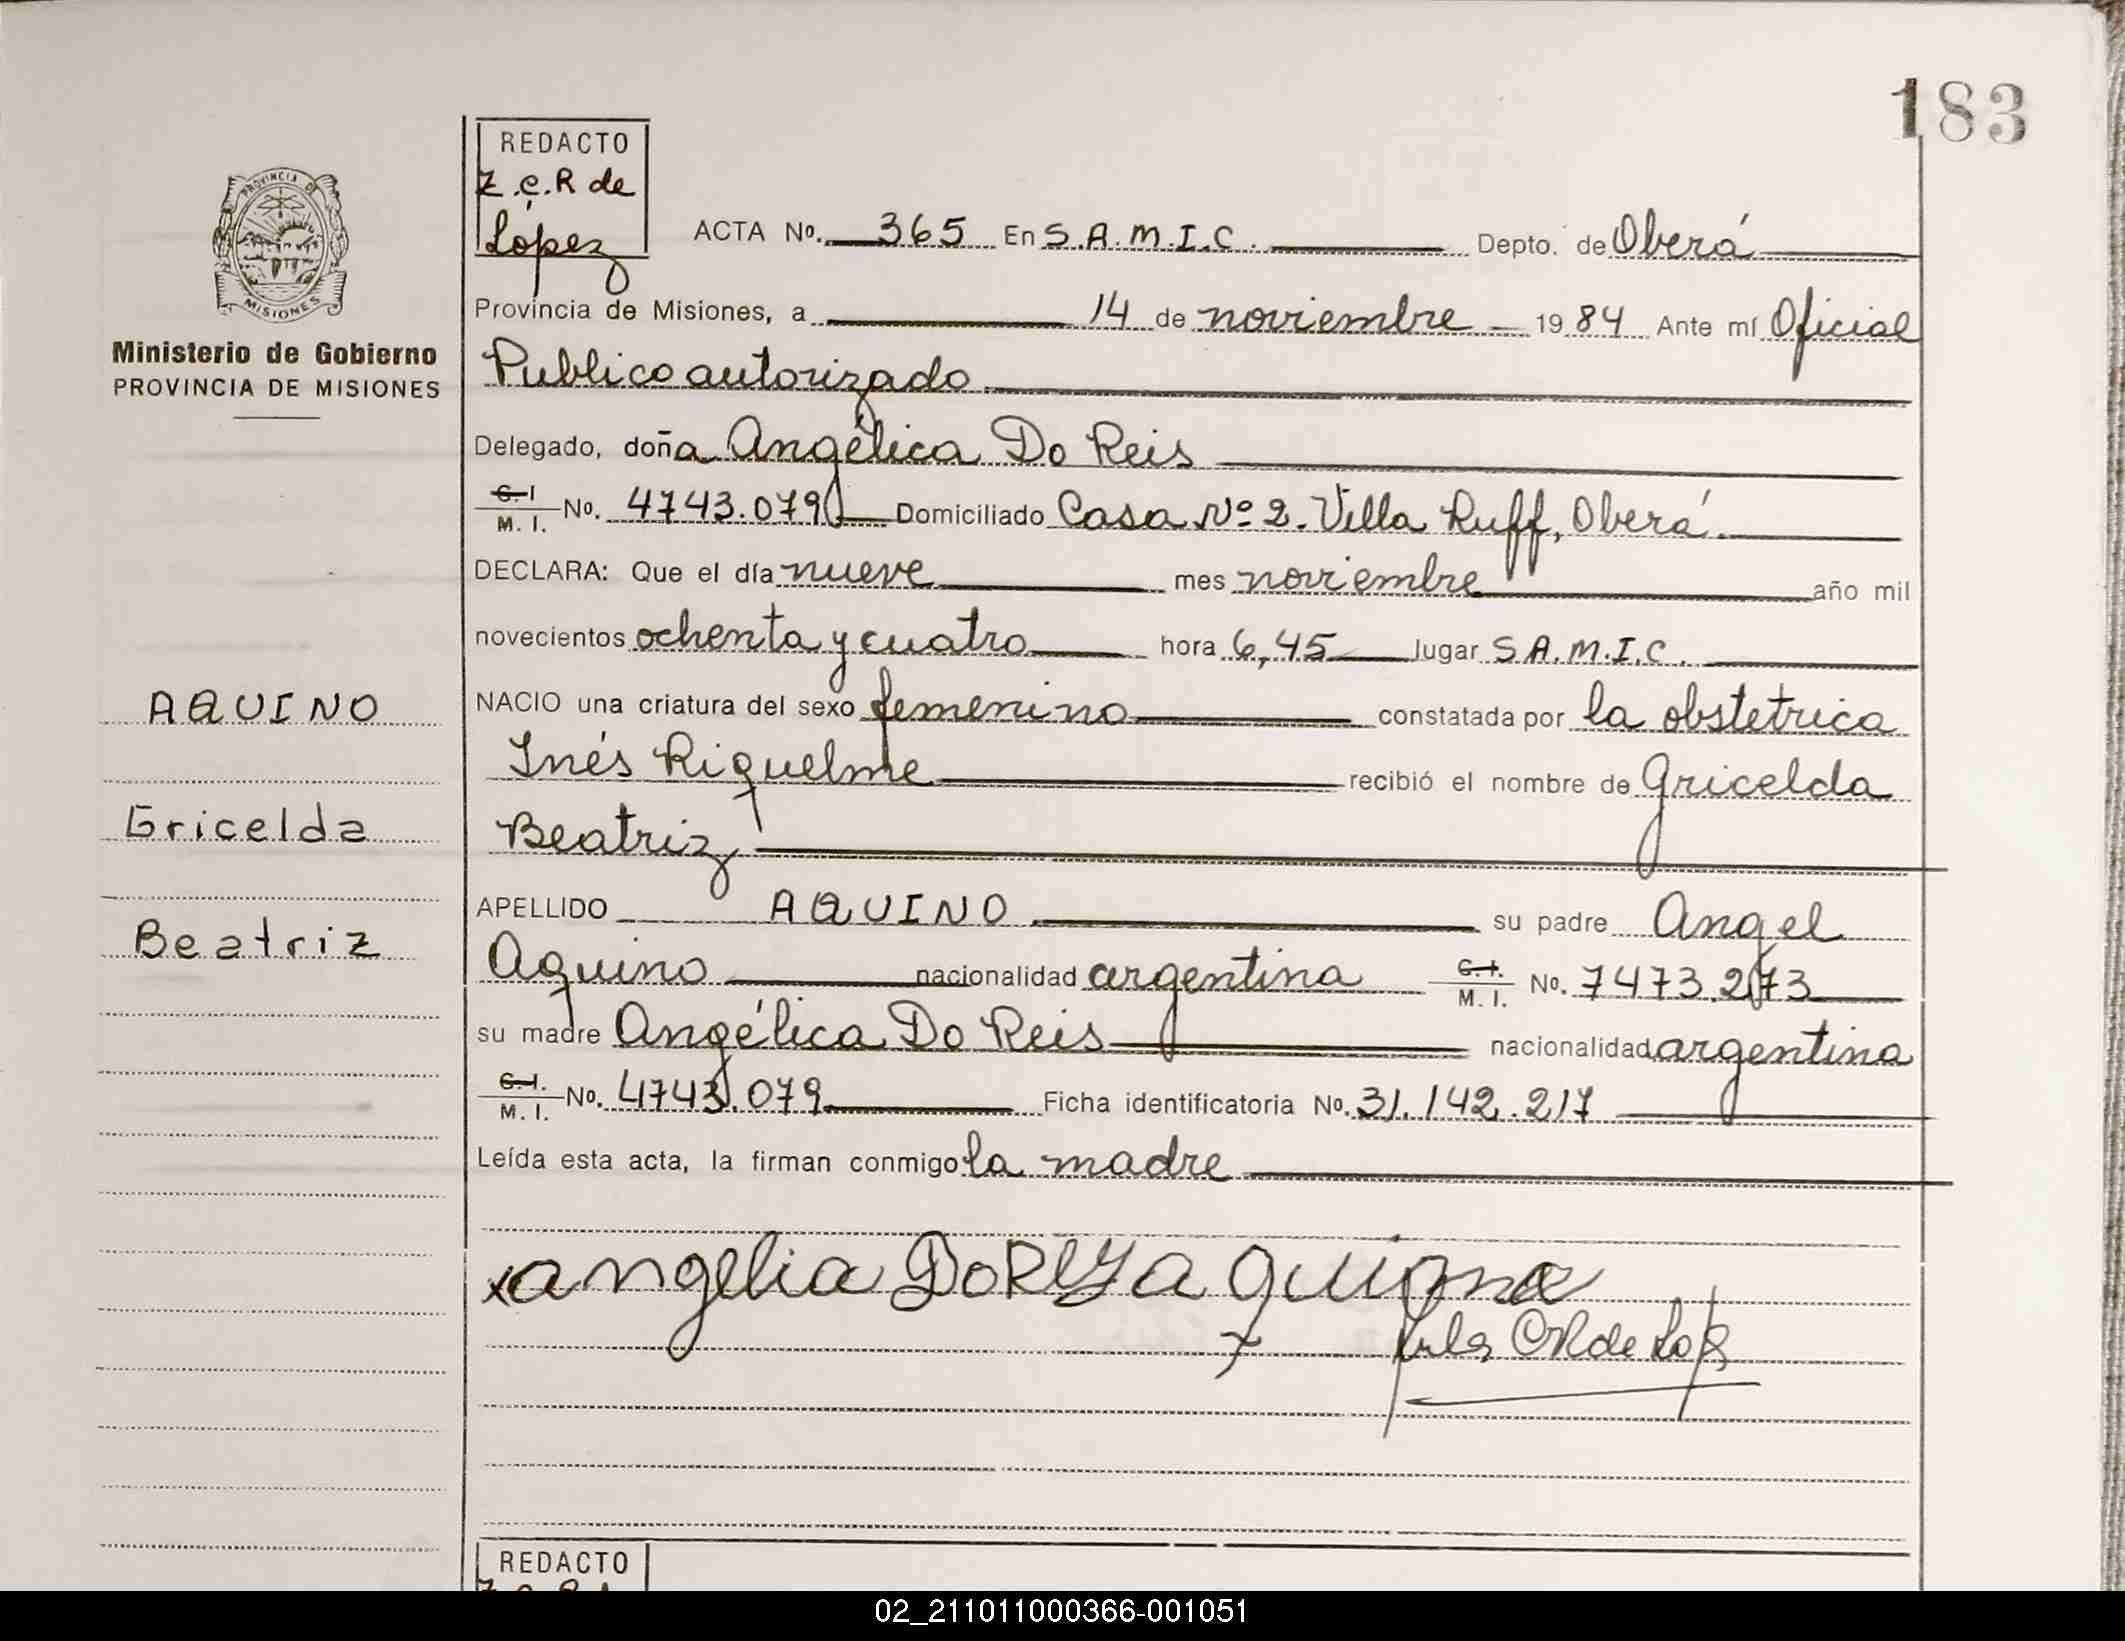 183
REDACTO
Z.C.R de
López
ACTA No. 365 En S.A.M.I.C. Depto. de Oberá
PROVINCIA DE
MISIONES
Provincia de Misiones, a 14 de noviembre 1984 Ante mí Oficial
Ministerio de Gobierno
PROVINCIA DE MISIONES
Publico autorizado
Delegado, doña Angélica Do Reis
C. I
M. I. No. 4743.079 Domiciliado Casa Nº 2. Villa Ruff, Oberá.
DECLARA: Que el día nueve mes noviembre año mil
novecientos ochenta y cuatro hora 6,45 lugar S.A.M.I.C.
AQUINO
NACIO una criatura del sexo femenino constatada por la obstetrica
Inés Riquelme recibió el nombre de Gricelda
Gricelda
Beatriz
APELLIDO AQUINO su padre Angel
Beatriz
Aquino nacionalidad argentina C. I. M. I. No. 7473.273
su madre Angélica Do Reis nacionalidad argentina
C. I.
M. I. No. 4743.079 Ficha identificatoria No. 31.142.217
Leída esta acta, la firman conmigo la madre
x angelia DoReys aquino
x
REDACTO
02_211011000366-001051